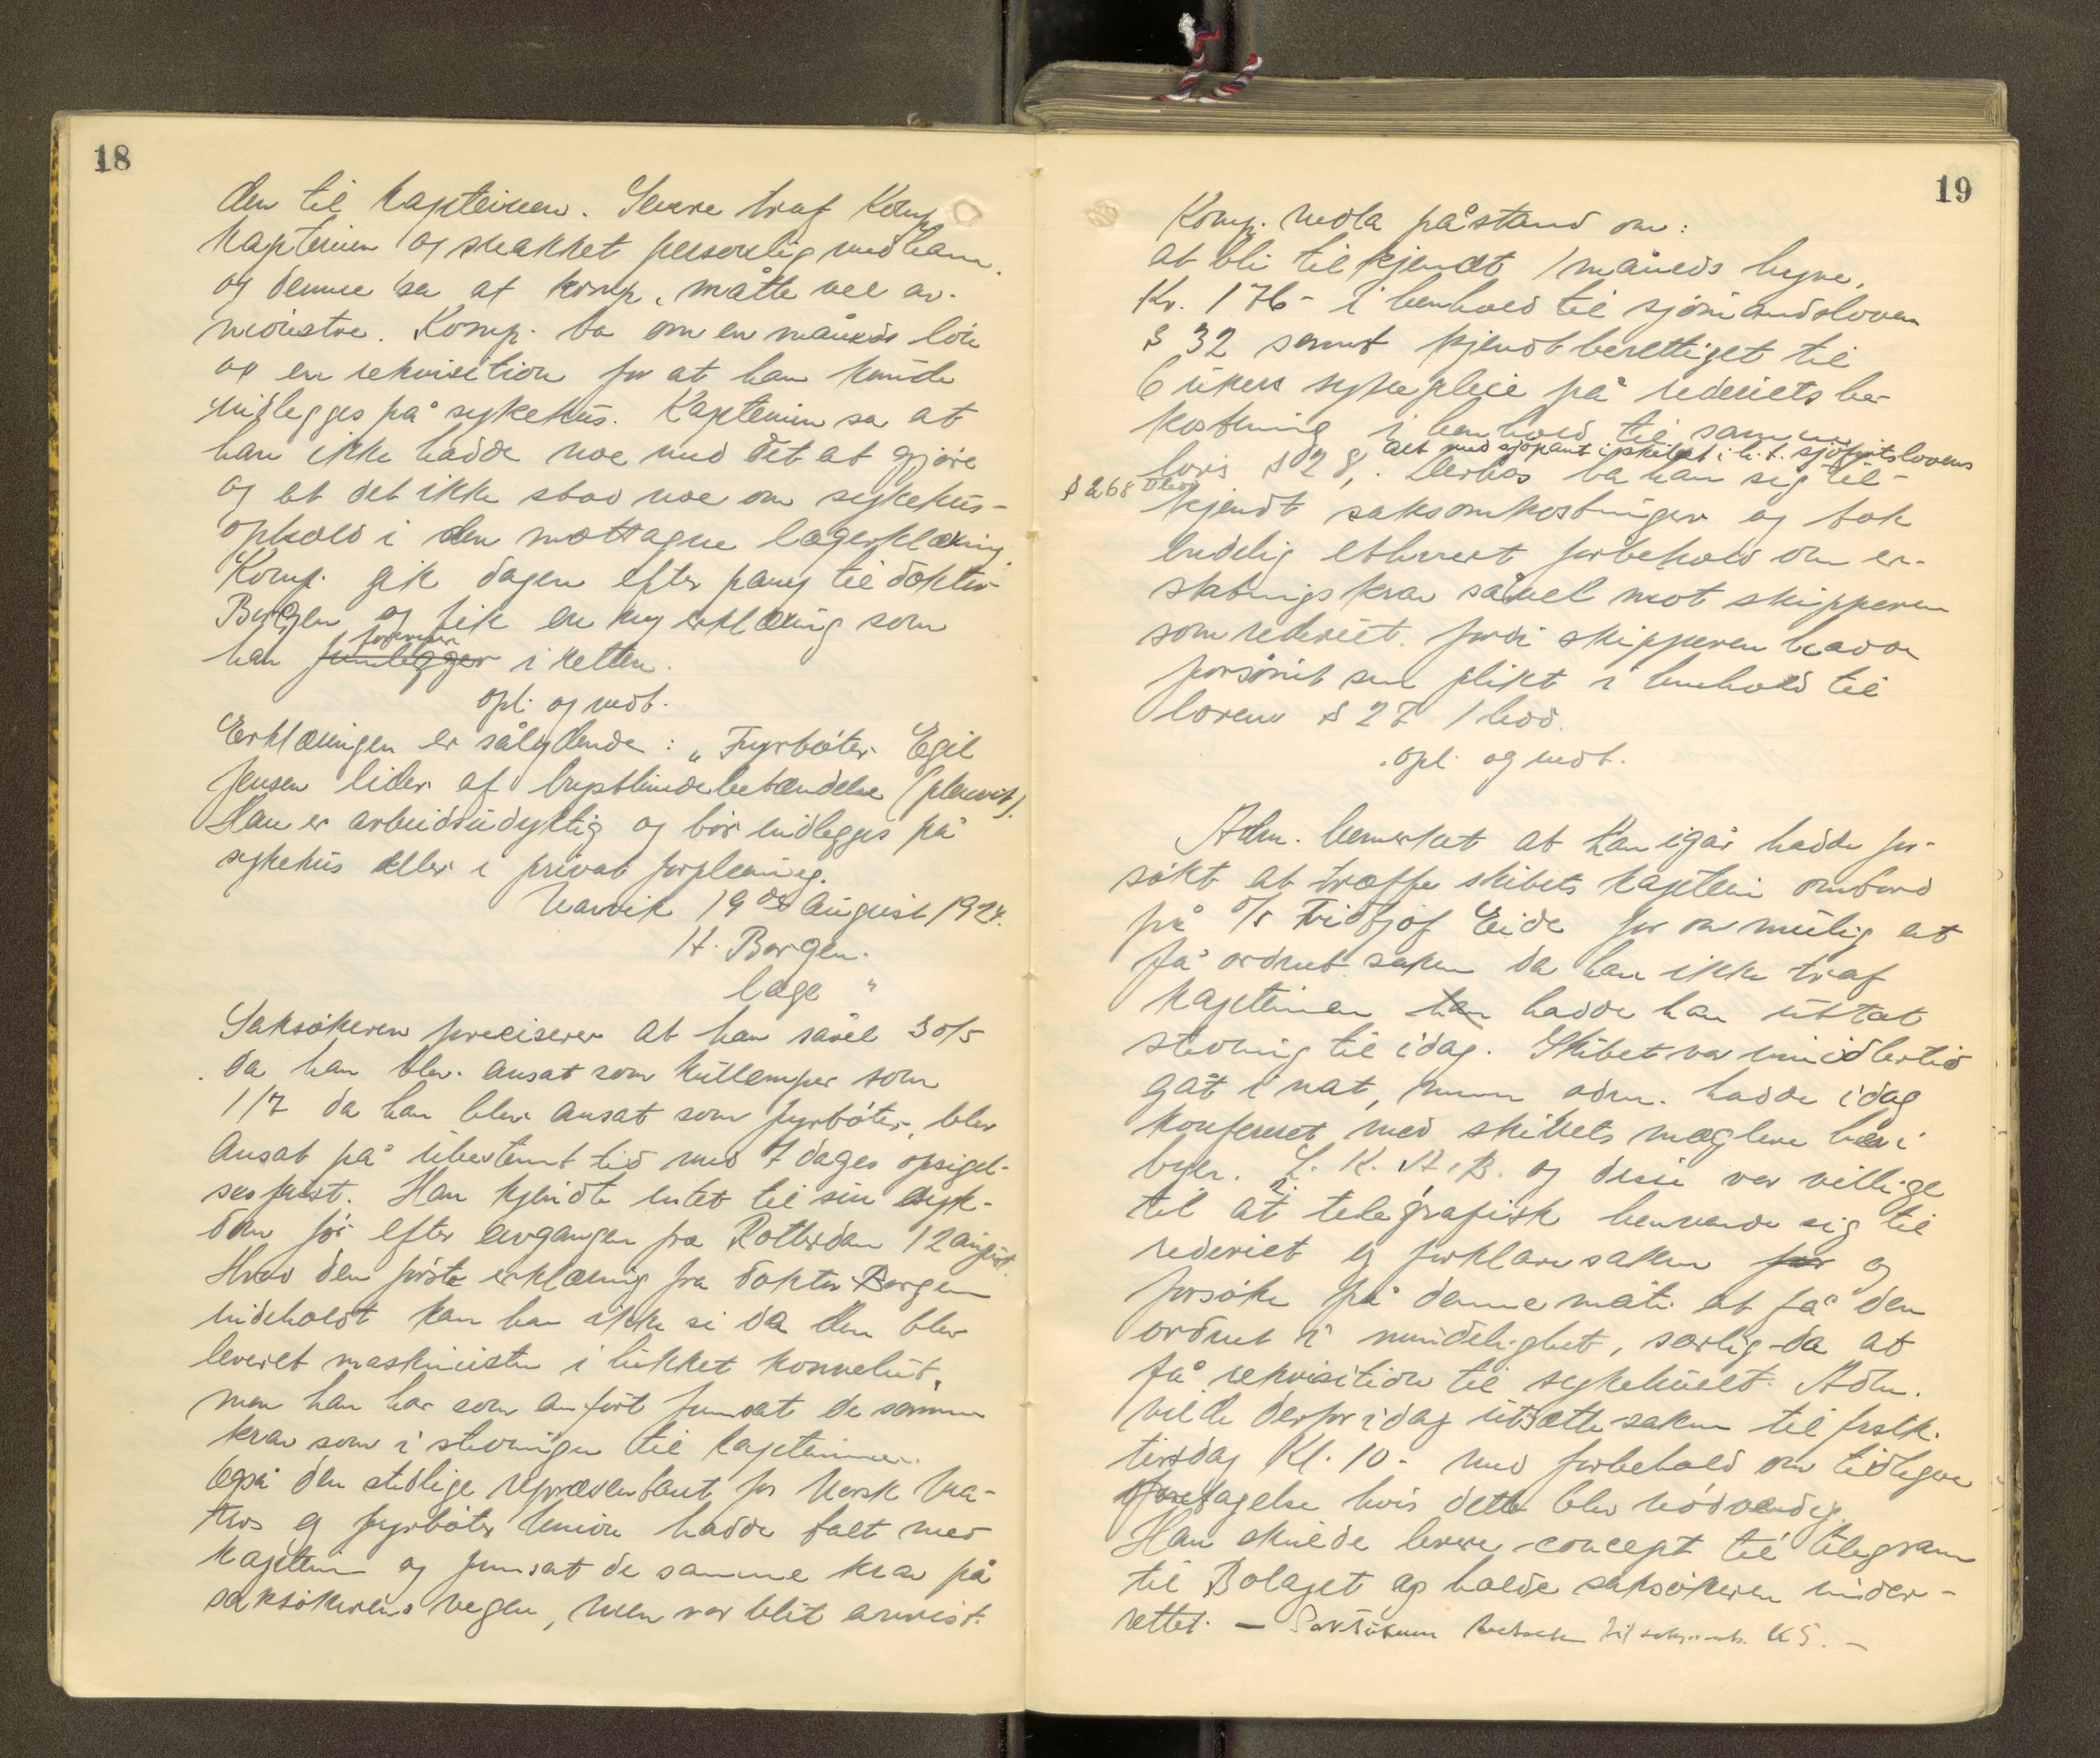 18
den til kapteinen. Senere traf Komp.
kapteinen og snakket personlig med ham.
og denne sa at komp. måtte vel av-
mönstre. Komp. ba om en måneds lön
og en rekvisition for at han kunde
indlegges på sykehus. Kapteinen sa at
han ikke hadde noe med det at gjöre
og at det ikke stod noe om sykehus-
ophold i den mottagne lægerklæring
Komp. gik dagen efter påny til doktor
Borgen og fik en ny erklæring som
han fremlegger foreviser i retten.
opl. og vedt.
Erklæringen er sålydende: "Fyrböter Egil
Jensen lider af brysthindebetændelse (pleurit).
Han er arbeidsudyktig og bör indlegges på
sykehus eller i privat forpleining.
Narvik 19de August 1924.
H. Borgen.
læge "
Saksökeren preciserer at han såvel 30/5
da han blev ansat som kullemper som
1/7 da han blev ansat som fyrböter, blev
ansat på ubestemt tid med 7 dages opsigel-
sesfrist. Han kjendte intet til sin syk-
dom för efter avgangen fra Rotterdam 12 august.
Hvad den förste erklæring fra doktor Borgen
indeholdt kan han ikke si da den blev
leveret maskinisten i lukket konvelut,
men han har som anfört fremsat de samme
krav som i stevningen til kapteinen.
Også den stedlige repræsentant for Norsk Ma-
tros og fyrböter Union hadde talt med
kaptein og fremsat de samme krav på
saksökerens vegne, men var blit avvist.
19
Komp. nedla påstand om:
at bli tilkjendt 1 måneds hyre,
Kr. 176- i henhold til sjömandsloven
§ 32 samt kjendt berettiget til
6 ukers sykepleie på rederiets be-
kostning i henhold til samme
alt med sjöpant i skibet i h.t. sjöfartslovens
lovs § 28,. Derhos ba han sig til-
§ 268
kjendt saksomkostninger og tok
endelig ethvert forbehold om er-
statningskrav såvel mot skipperen
som rederiet. fordi skipperen hadde
forsömt sin plikt i henhold til
lovens § 27 1 ledd.
opl. og vedt.
Adm. bemerket at han igår hadde for-
sökt at træffe skibets kaptein ombord
på D/S Fridtjof Eide for om mulig at
få ordnet saken da han ikke traf
kapteinen han hadde han uttat
stevning til idag. Skibet var imidlertid
gåt i nat, men adm. hadde idag
konfereret med skibets mæglere her i
byen. L. K. A. B. og disse var villige
til at telegrafisk henvende sig til
rederiet og forklare saken for og
forsöke på denne måte at få den
ordnet i mindelighet, særlig da at
få rekvisition til sykehuset. Adm.
vilde derfor idag utsætte saken til förstk.
tirsdag Kl. 10. med forbehold om tidligere
foretagelse hvis dette blev nödvendig.
Han skulde levere concept til telegram
til Bolaget og holde saksökeren under-
rettet. — Saksökeren